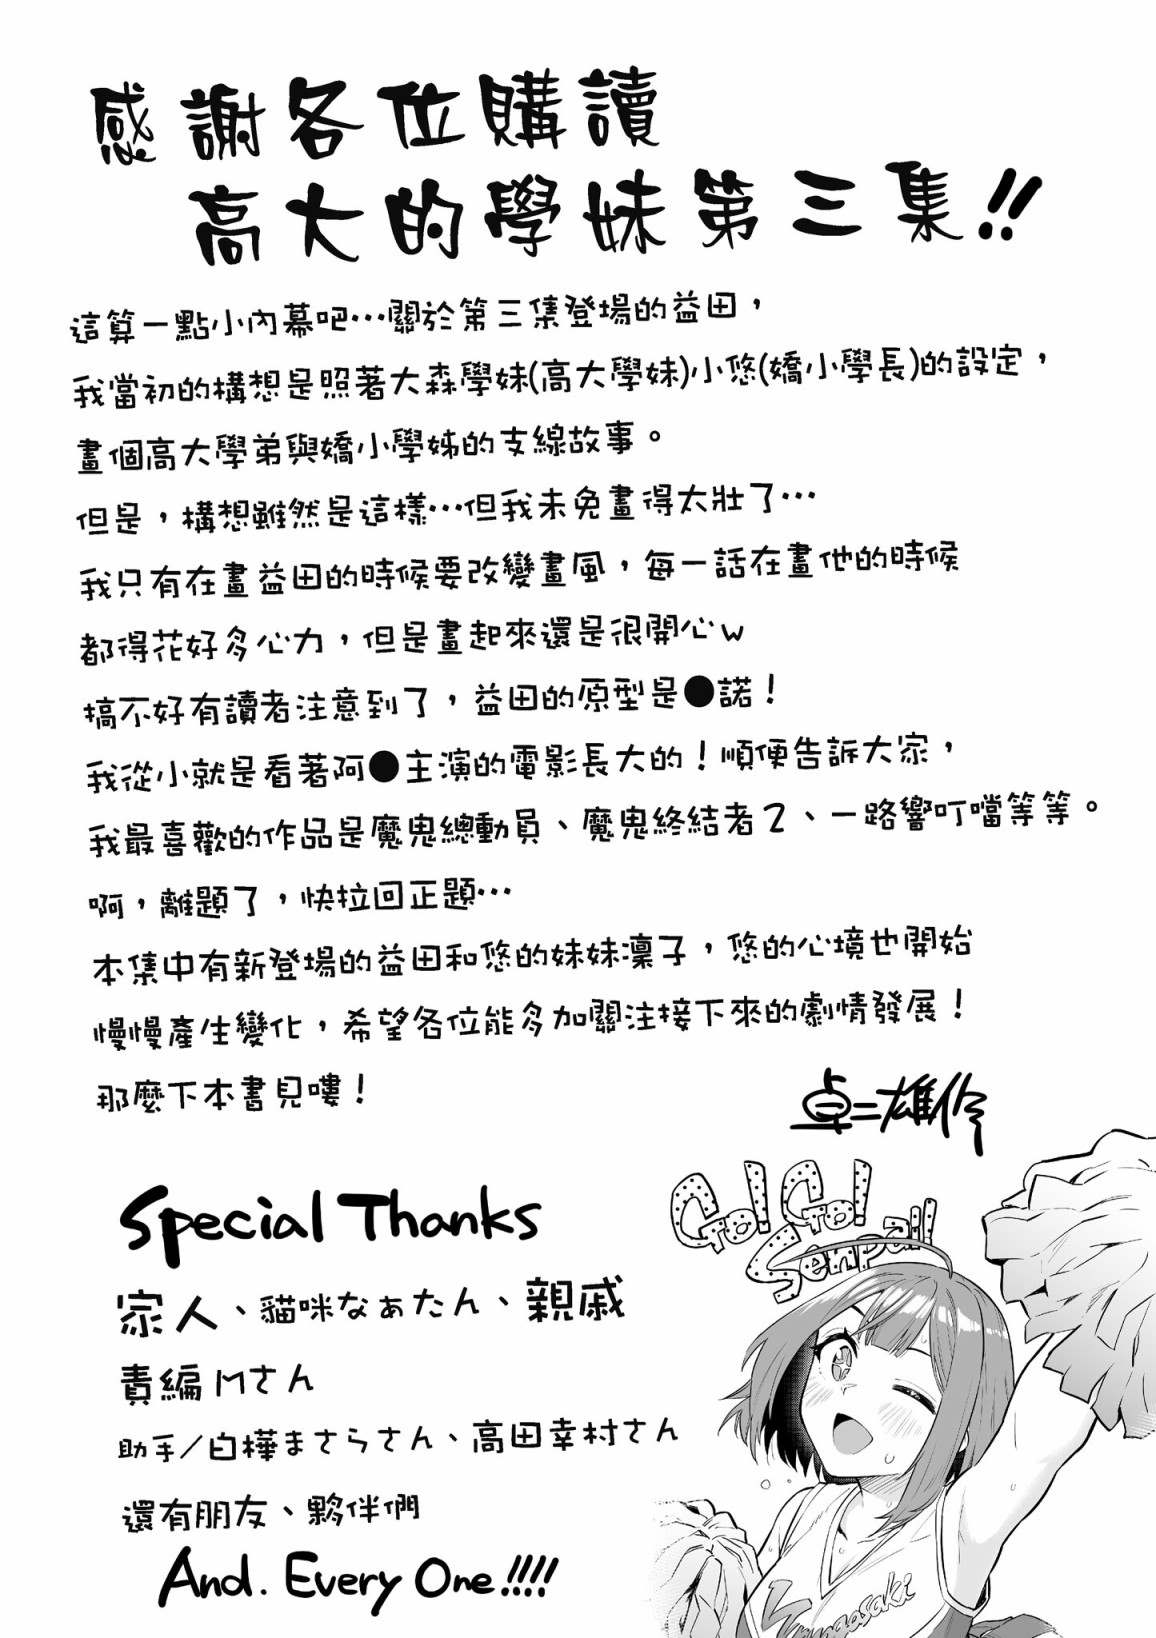 感謝各位購讀
高大的學妹第三集!!
這算一點小內幕吧⋯關於第三集登場的益田，
我當初的構想是照著大森學妹(高大學妹)小悠(嬌小學長)的設定，
畫個高大學弟與嬌小學姊的支線故事。
但是，構想雖然是這樣⋯但我未免畫得太壯了⋯
我只有在畫益田的時候要改變畫風，每一話在畫他的時候
都得花好多心力，但是畫起來還是很開心w
搞不好有讀者注意到了，益田的原型是●諾！
我從小就是看著阿●主演的電影長大的！順便告訴大家，
我最喜歡的作品是魔鬼總動員、魔鬼終結者2、一路響叮噹等等。
啊，離題了，快拉回正題⋯
本集中有新登場的益田和悠的妹妹凜子，悠的心境也開始
慢慢產生變化，希望各位能多加關注接下來的劇情發展！
那麼下本書見嘍！
卓二雄伶
Go! Go!
Senpai!!
Special Thanks
家人、貓咪なぁたん、親戚
責編Mさん
助手/白樺まさらさん、高田幸村さん
還有朋友、夥伴們
And. Every One!!!!